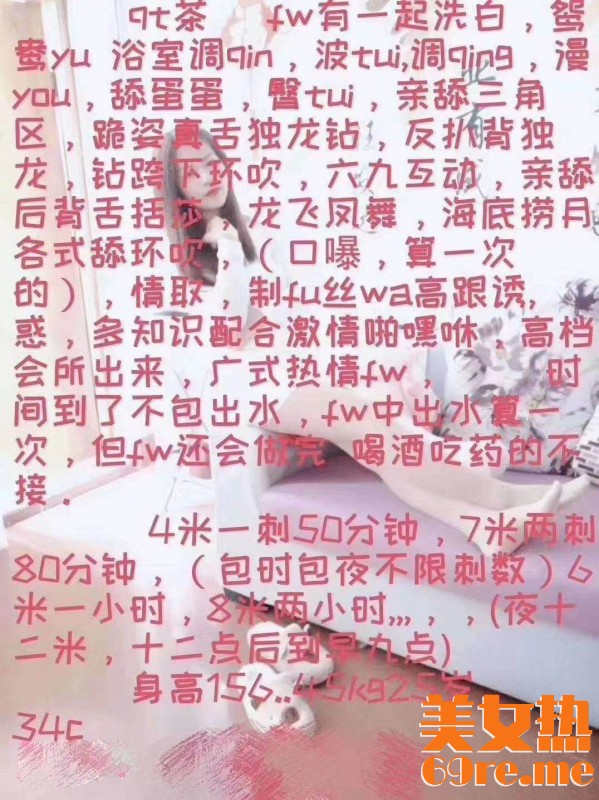 qt茶 fw有一起洗白，鸳
鸯yu 浴室调qin，波tui,调qing，漫
you，舔蛋蛋，臀tui，亲舔三角
区，跪姿真舌独龙钻，反扒背独
龙，钻跨下环吹，六九互动，亲舔
后背舌括莎，龙飞凤舞，海底捞月
各式舔环吹，（口曝，算一次
的），情取，制fu丝wa高跟诱,
惑，多知识配合激情啪嘿咻，高档
会所出来，广式热情fw， 时
间到了不包出水，fw中出水算一
次，但fw还会做完 喝酒吃药的不
接．
4米一刺50分钟，7米两刺
80分钟，（包时包夜不限刺数）6
米一小时，8米两小时,,,，，(夜十
二米，十二点后到早九点)
身高156..45kg25岁
34c
美女热
69re.me